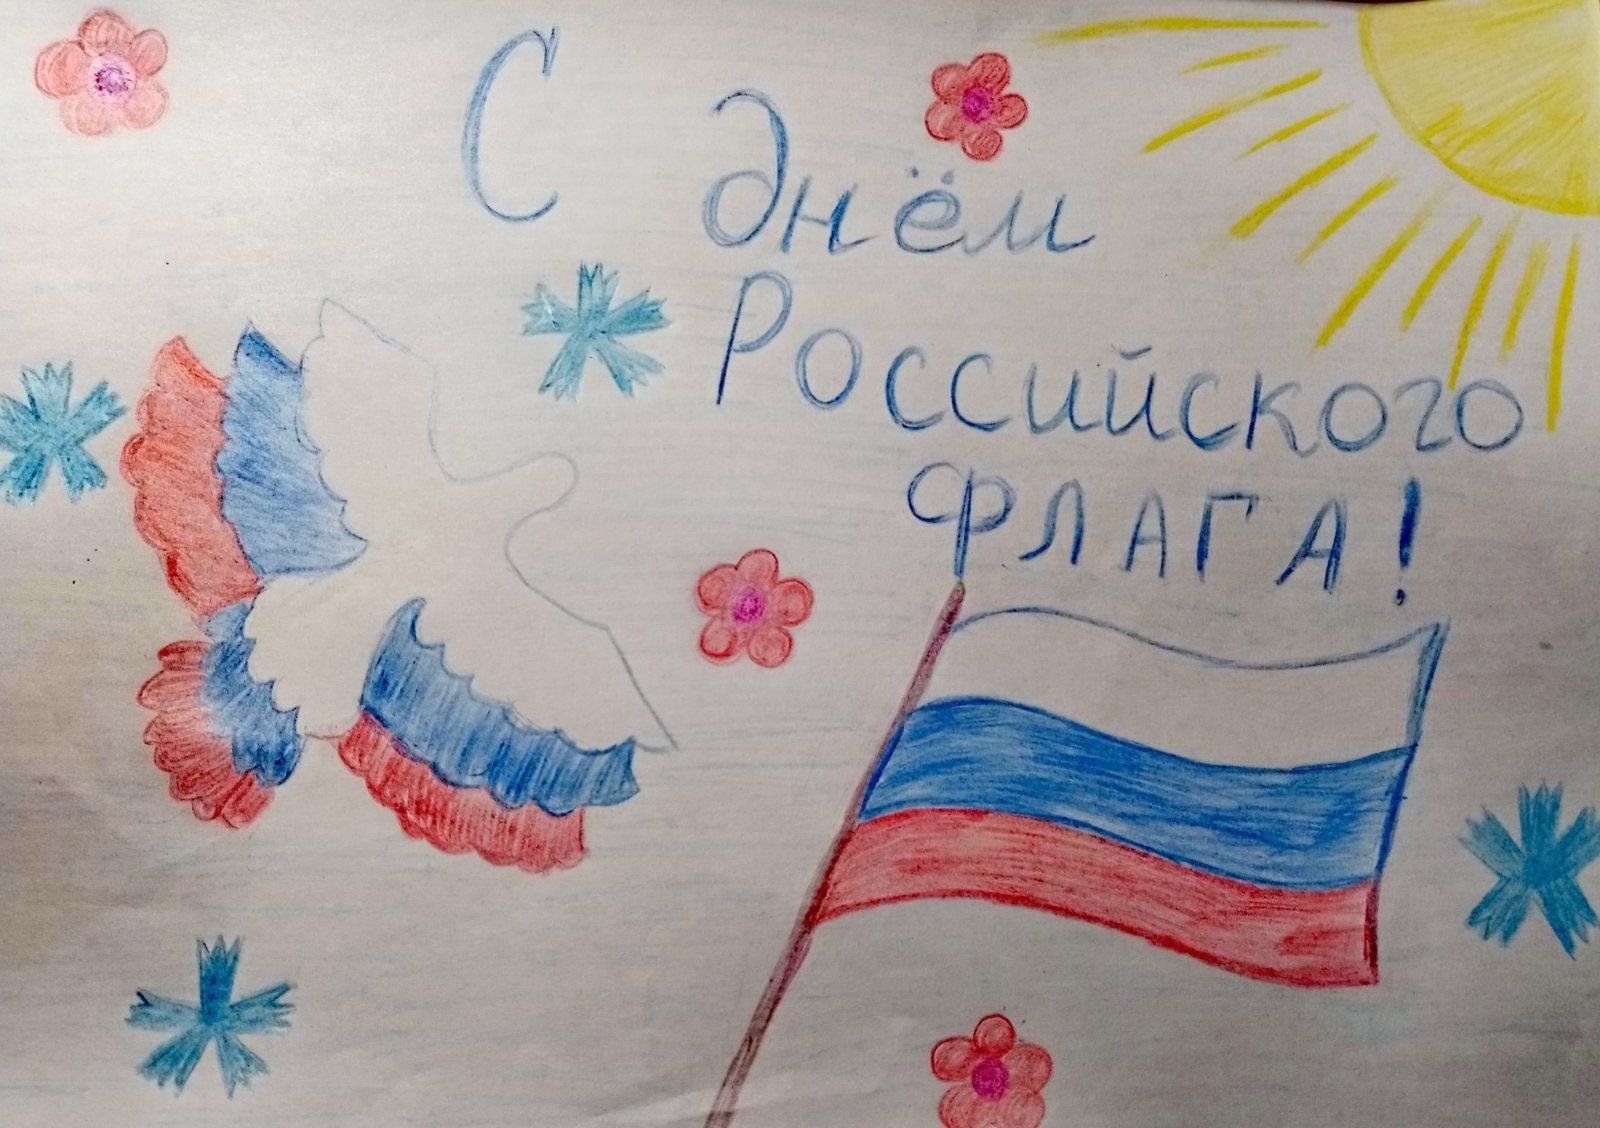 С днём
Российского
ФЛАГА!